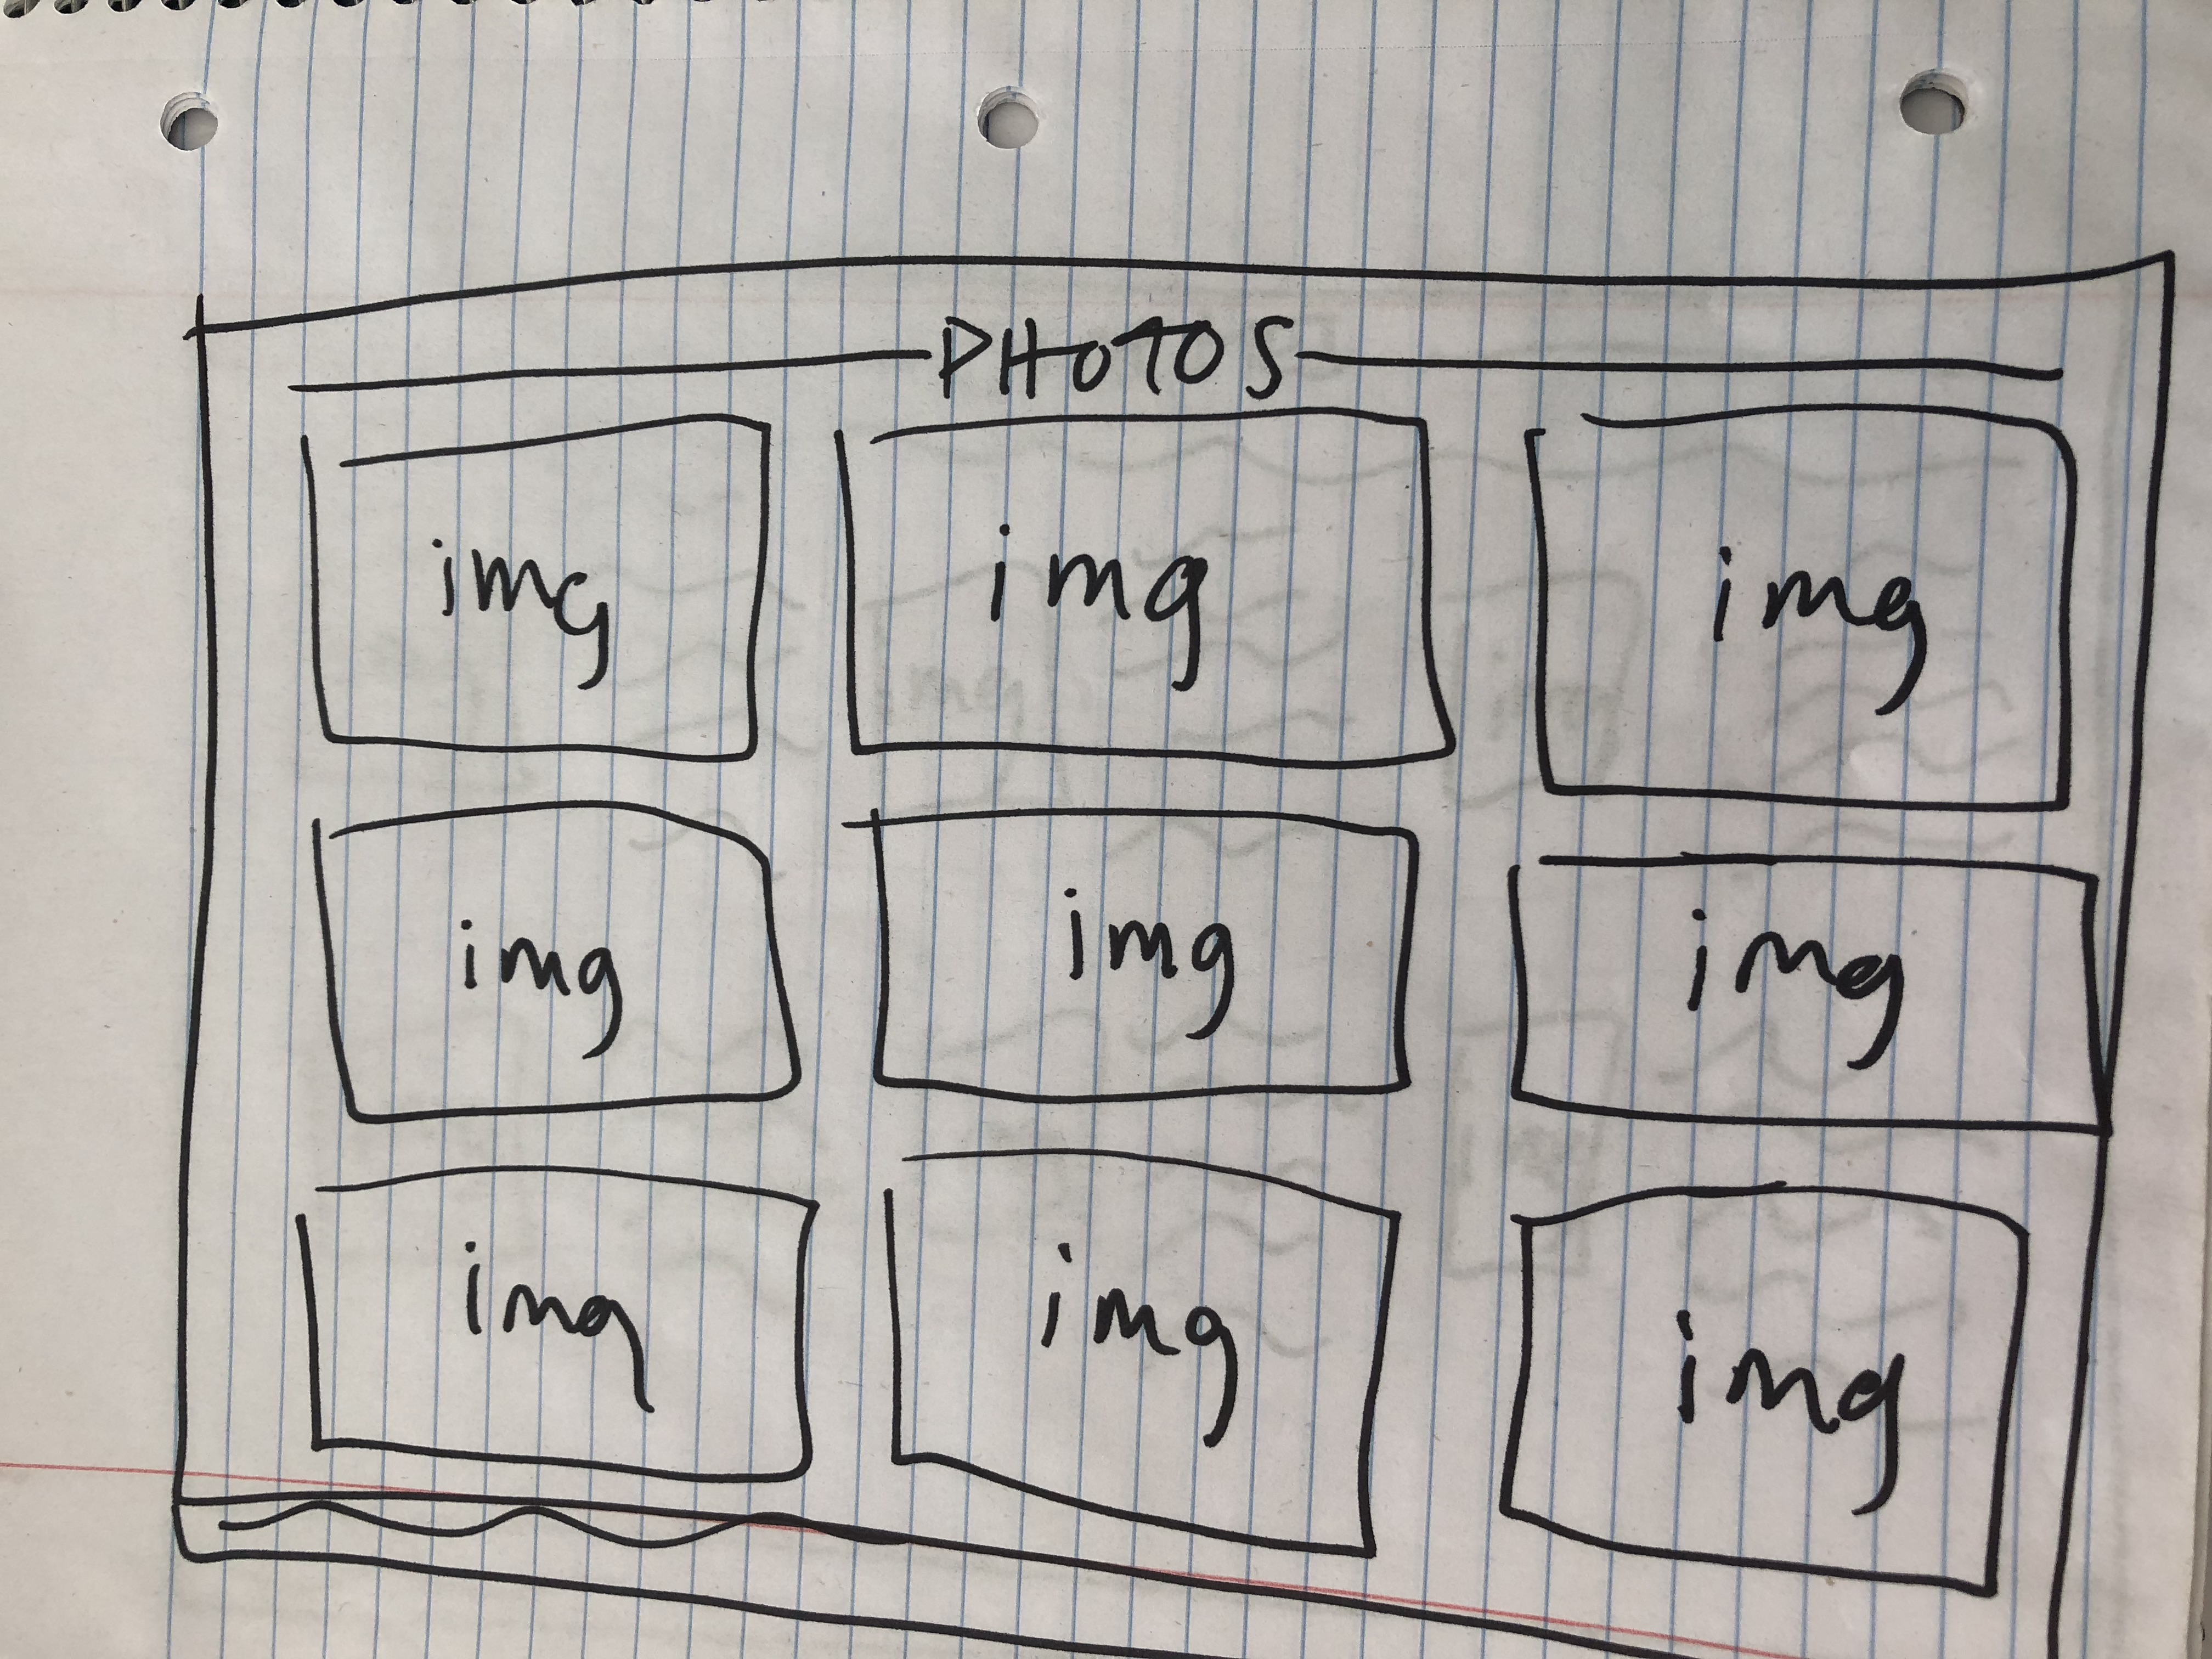 PHOTOS
img img img
img img img
img img img